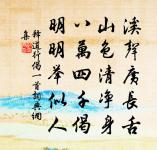 溪聲廣長舌
山色清淨身
八萬四千偈
明明舉似人
釋道行偈一首詞典網
集